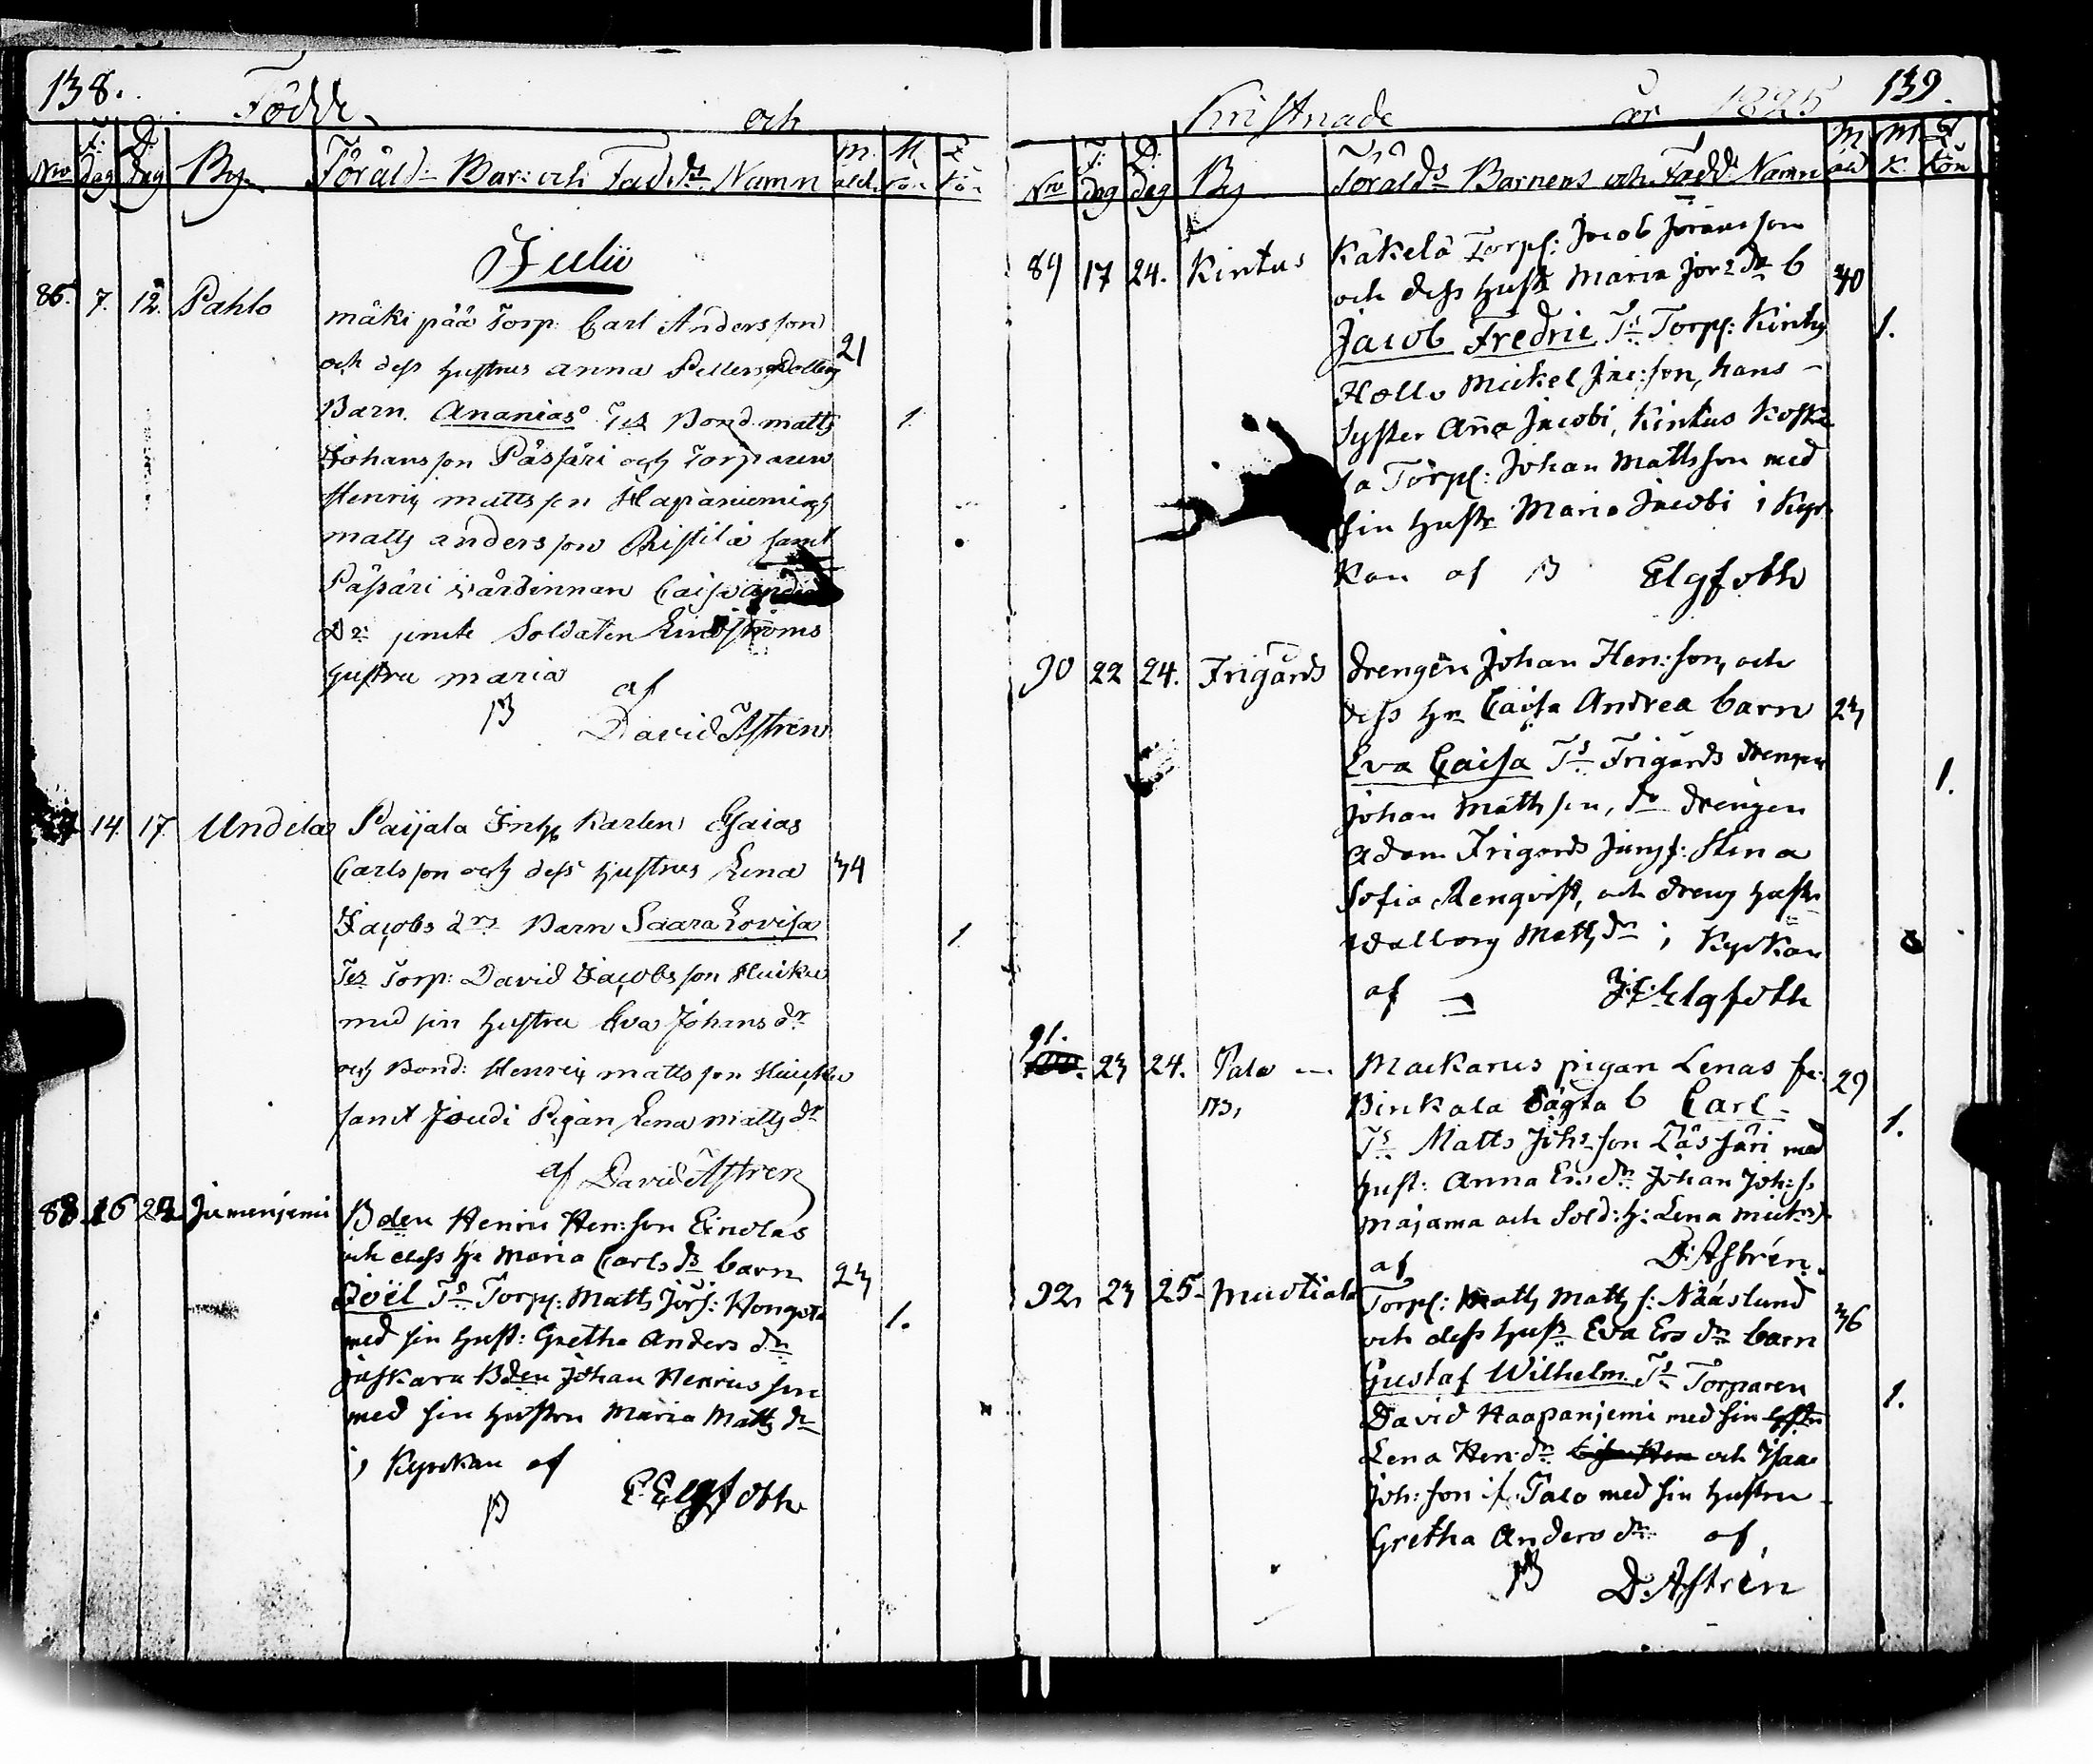 138.
Födde och
Nro F: dag D. dag By Föräld: Bar: och Faddrs Namn m. ald. M kön Q kön
Julii
86. 7. 12. Pahlo mäki pää Torp: Carl Andersson
och dess hustrus Anna Petters Dotters 21
Barn. Ananias Tes Bond. Matts 1.
Johansson Pässäri och Torparen
Henric Mattsson Hapaniemi och
Matts Andersson Ristilä samt
Päsäri värdinnan Caisa Anders
Dr: samte Soldaten Lindströms
hustru Maria
af
David Astren
14. 17. Undela Paijala Inhs Karlen Esaias
Carlsson och dess hustrus Lena 34
Jacobs drs Barn Saara Lovisa 1
Tes Torp: David Jacobsson Huiku
med sin hustru Eva Johans dr
och Bond: Henric Mattsson Huicku
samt Joudi Pigan Lena Matts dr
af David Astren
88 16 Jumenjemi Bden Henric Hen:son Einolas
och dess hu Maria Carls dr barn 23
Joël Ts Torp: Matts Jör: 1.
med sin Hust: Gretha Anders dr
Juskara Bden Johan Henricsson
med sin hustru Maria Matts dr
i Kyrkan af
Elgfoth
139.
Kristnade år 1825
Nro F: dag D: dag By Förälds Barnens och Fadd: Namn M ald M K. Q Kön
89 17 24. Kintus Käkelä Torp: Jacob Göransson
och dess hustr Maria Jor: dr b 40
Jacob Fredric Ts Torp: Kintus 1.
Hollo Mickel Jac:son, hans
Syster Anna Jacobi, Kintus Koske
la Torp: Johan Mattsson med
sin hustr Maria Jacobi i Kyr
kan af Elgfoth
90 22 24. Frigårds drengen Johan Hen:son, och
dess hu Caisa Andrea barn 23
Eva Caisa Ts Frigårds drengen 1.
Johan Mattsson, do drengen
Adam Frigårds Jungf: Stina
Sofia Renqvist, och dreng hustr
Walborg Matts dr i Kyrkan
af Elgfoth
91. 23 24. Palo Mackarus pigan Lenas fr. 29
Binkala Sägta b Carl 1.
Ts Matts Joh:son Pässäri med
hust: Anna Ers dr Johan Joh:s
Majama och Sold: h: Lena Mick: d
af D: Astrén.
92, 23 25. Mustiala Torp: Matts Matts s: Nääslund 36
och dess hustr Eva Ers dr barn
Gustaf Wilhelm Ts Torparen 1.
David Haapanjemi med sin hstru
Lena Hen: dr och Isaac
Joh:son Talo med sin hustru
Gretha Anders dr. af
D: Astrén